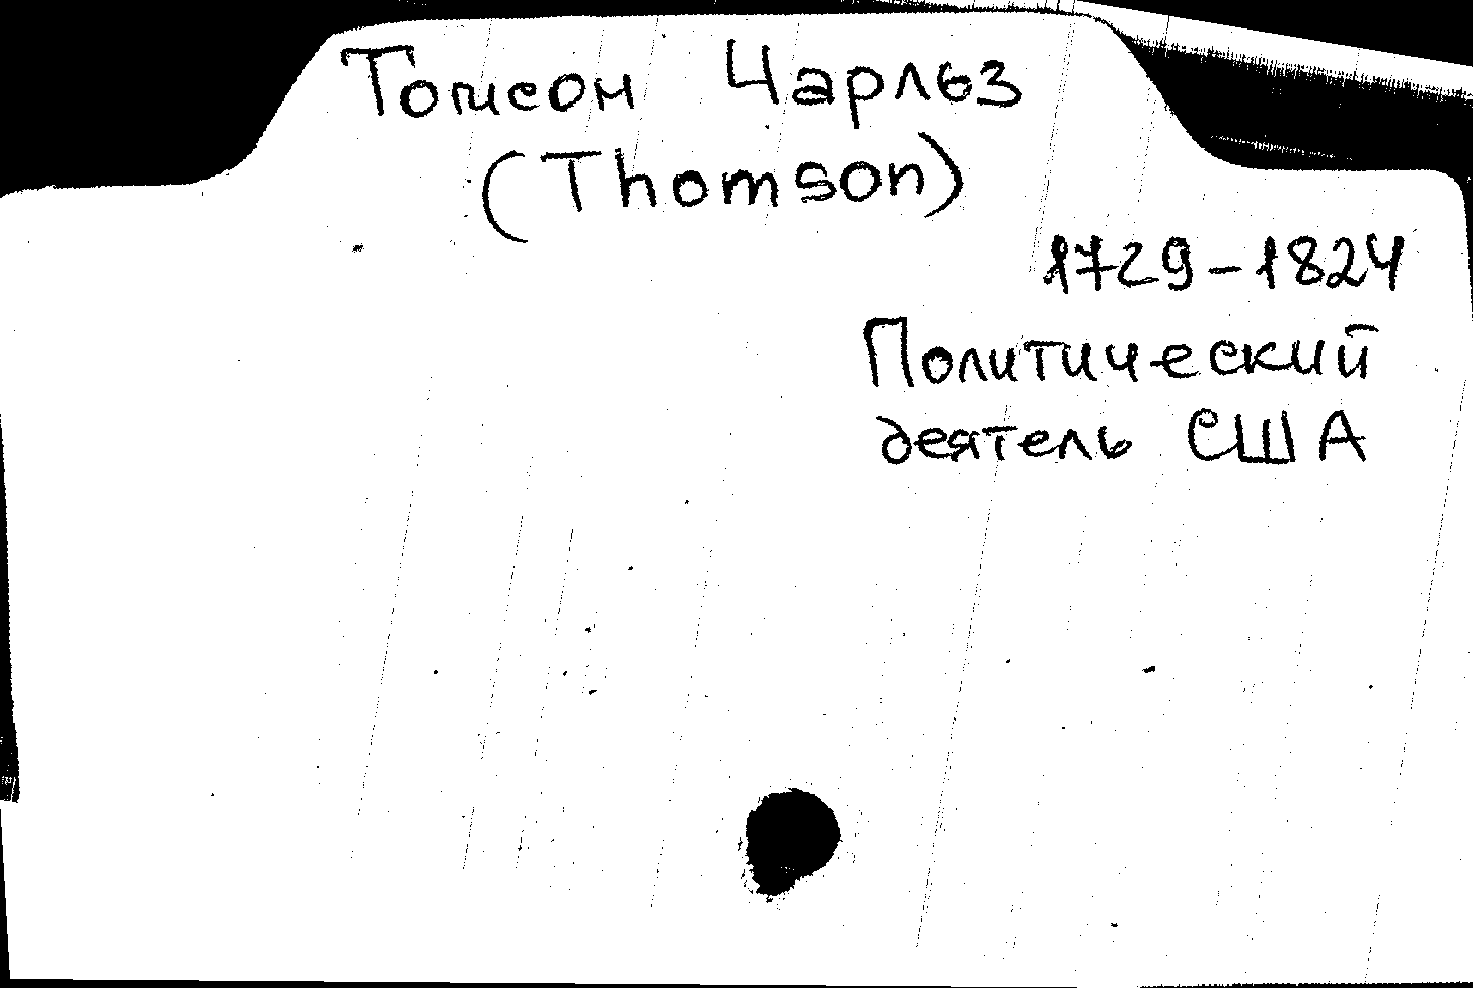 Томсон Чарльз
(Thomson)
1729-1824
Политический
деятель США